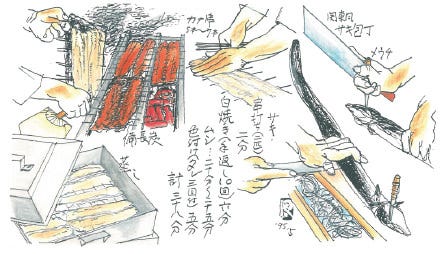 関東风
サキ包丁
メウチ
サキ・
串打ち(一匹)
二分
白焼き(手返し一〇回)六分
ムシ・二十分～二十五分
色付け(タレ三回付)五分
計三十八分
カナ串
備長炭
蒸し
'95.5